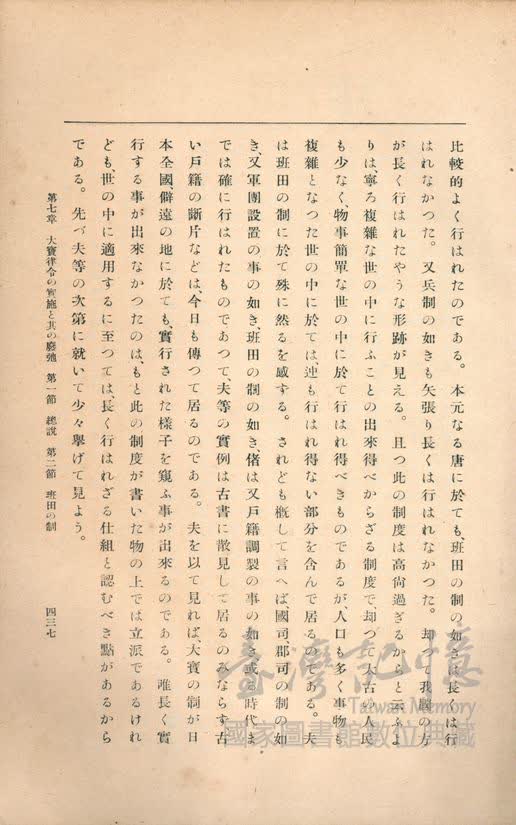 比較的よく行はれたのである。 本元なる唐に於ても、班田の制の如きは長くは行
はれなかつた。 又兵制の如きも矢張り長くは行はれなかつた。 却つて我國の方
が長く行はれたやうな形跡が見える。 且つ此の制度は高尚過ぎるからと云ふよ
りは、寧ろ複雜な世の中に行ふことの出來得べからざる制度で、却つて太古の人民
も少なく、物事簡單な世の中に於て行はれ得べきものであるが、人口も多く事物も
複雜となつた世の中に於ては、迚も行はれ得ない部分を含んで居るのである。 夫
は班田の制に於て殊に然るを感ずる。 されども概して言へば、國司、郡司の制の如
き、又軍團設置の事の如き、班田の制の如き、偖は又戶籍調製の事の如き或る時代ま
では確に行はれたものであつて、夫等の實例は古書に散見して居るのみならず古
い戶籍の斷片などは、今日も傳つて居るのである。 夫を以て見れば、大寶の制が日
本全國、僻遠の地に於ても、實行された樣子を窺ふ事が出來るのである。 唯長く實
行する事が出來なかつたのは、もと此の制度が書いた物の上では立派であるけれ
ども、世の中に適用するに至つては、長く行はれざる仕組と認むべき點があるから
である。 先づ夫等の次第に就いて少々擧げて見よう。
第七章 大寶律令の實施と其の廢弛 第一節 總說 第二節 班田の制
四三七
臺灣記憶
Taiwan Memory
國家圖書館數位典藏